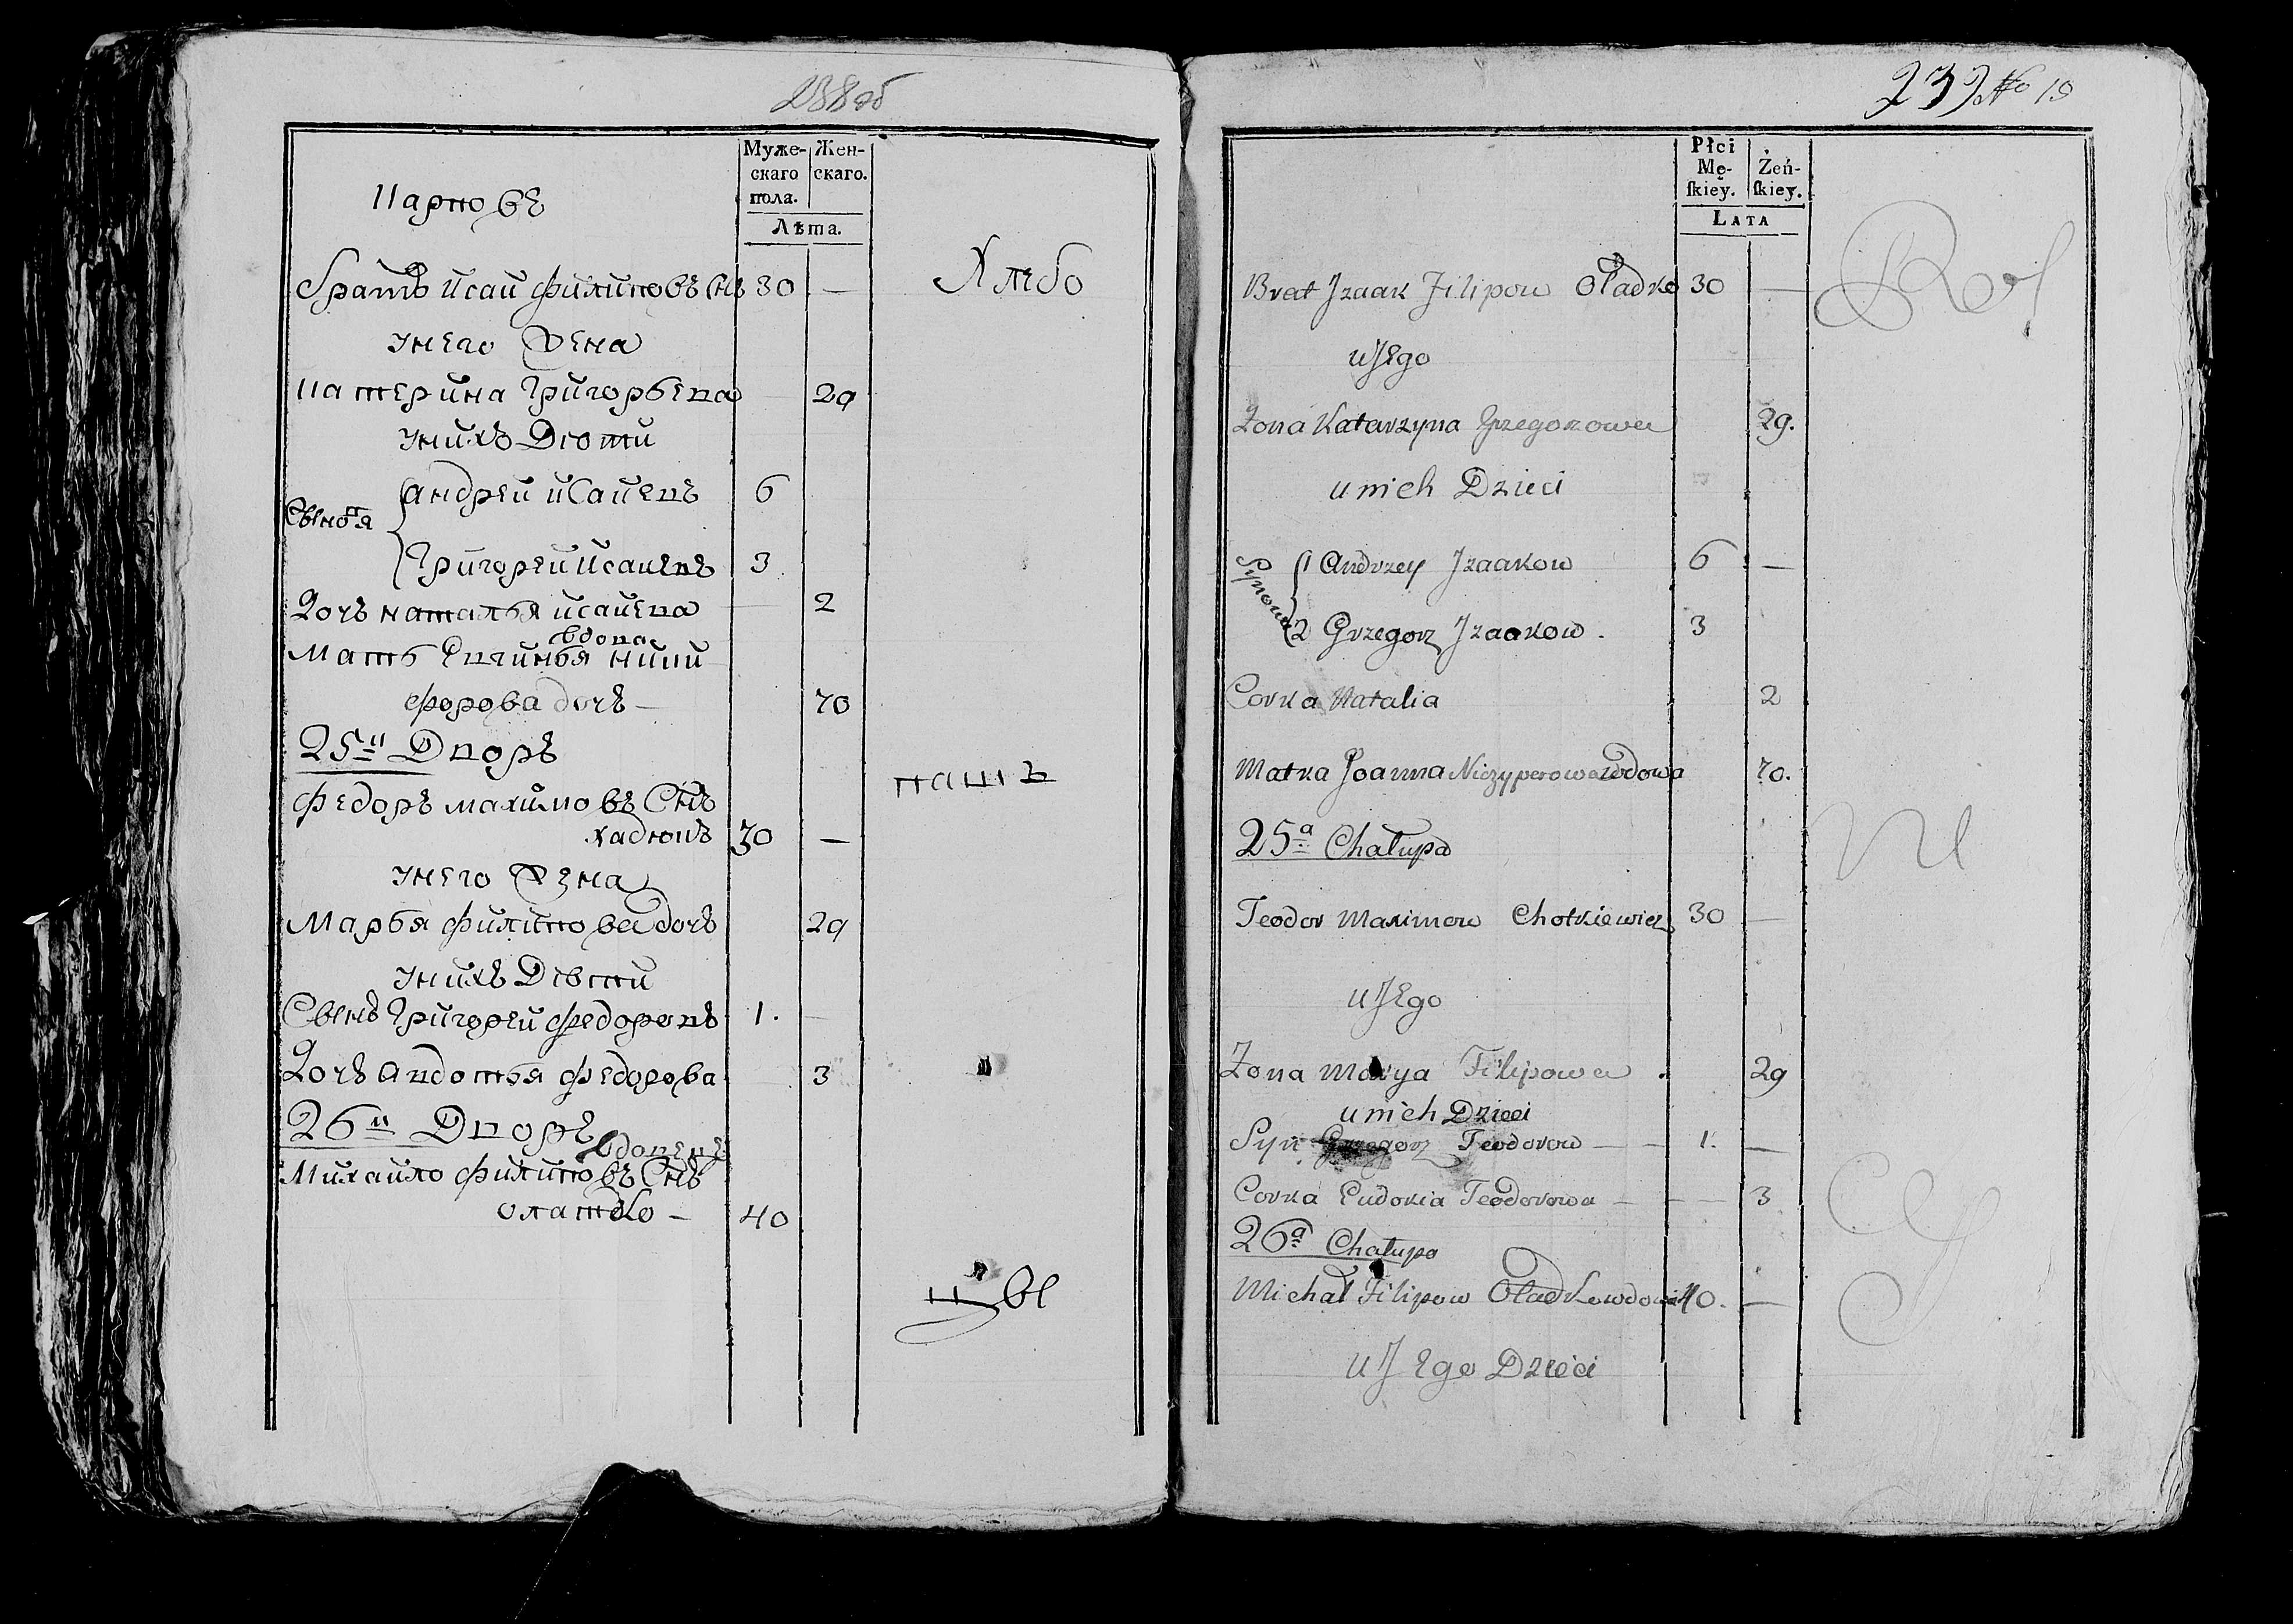 238об
Муже-
скаго
пола.
Жен-
скаго.
Лѣта.
Карповъ
братъ Исаи Филиповъ Снъ 30 —
Хлѣбо
унего Жена
Катерина Григорьева 29
унихъ Дѣти
Сыновья
Андреи Исаиевъ 6
Григореи Исаиевъ 3
Дочь Наталья Исаиева 2
вдова
Мать
форова дочь — 70
25й Дворъ
пашъ
Федоръ Махимовъ Снъ
30 —
унего Жена
Марья Филипова дочь 29
унихъ Дѣти
Сынъ Григореи Федоровъ 1. —
Дочь Авдотья Федорова 3
26й Дворъ
вдовецъ
Михаило Филиповъ Снъ
олатко — 40
239 No 19
Płci
Mę-
ſkiéy.
Żeń-
ſkiey.
LATA
Brat Jzaak Filipow Oladko 30 —
u Jego
Zona Katarzyna Grzegorowa 29.
u nich Dzieci
Synowie
1 Andrzey Jzaakow 6 —
2 Grzegorz Jzaakow. 3
Corka Natalia 2
Matka Joanna Niczyperowa wdowa 70.
25a Chałupa
Teodor Maximow Chotkiewicz 30 —
u Jego
Zona Marya Filipowa . 29
u nich Dzieci
Syn Grzegorz Teodorow — — 1. —
Corka Eudokia Teodorowa — — — 3
26a Chałupa
Michał Filipow Oladko wdowiec 40. —
u Jego Dzieci